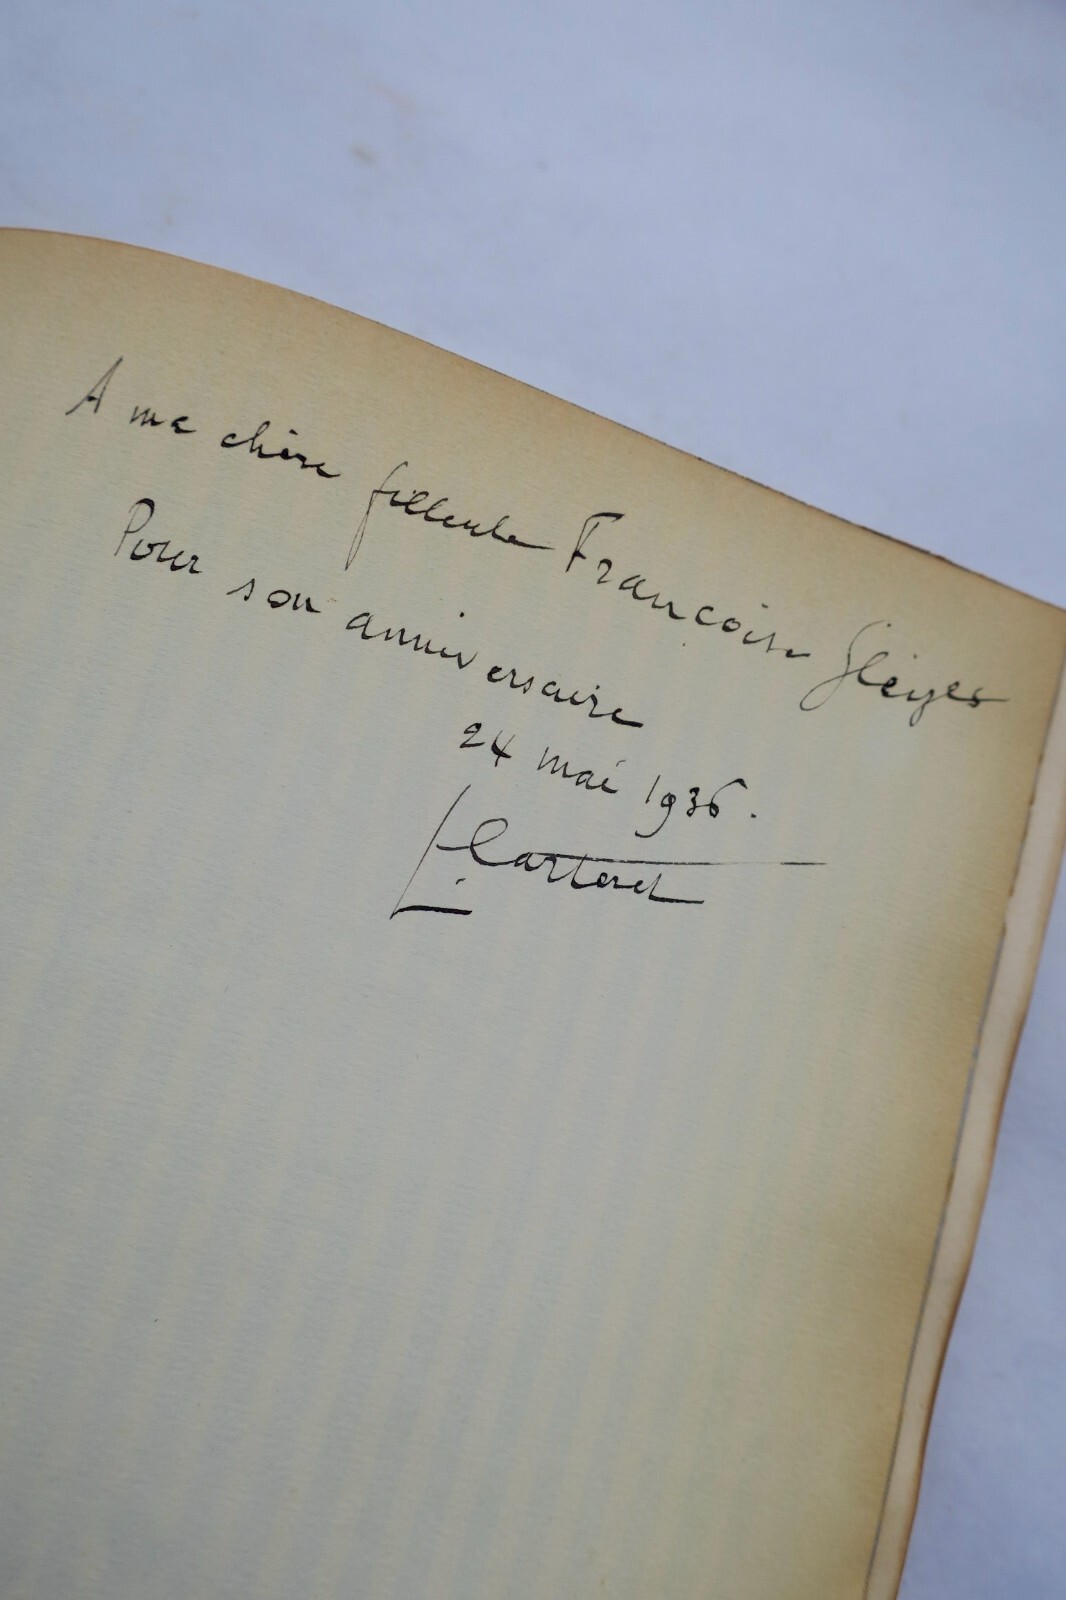 A ma chère filleule Françoise Gleizes
Pour son anniversaire
24 mai 1936.
L. Carteret